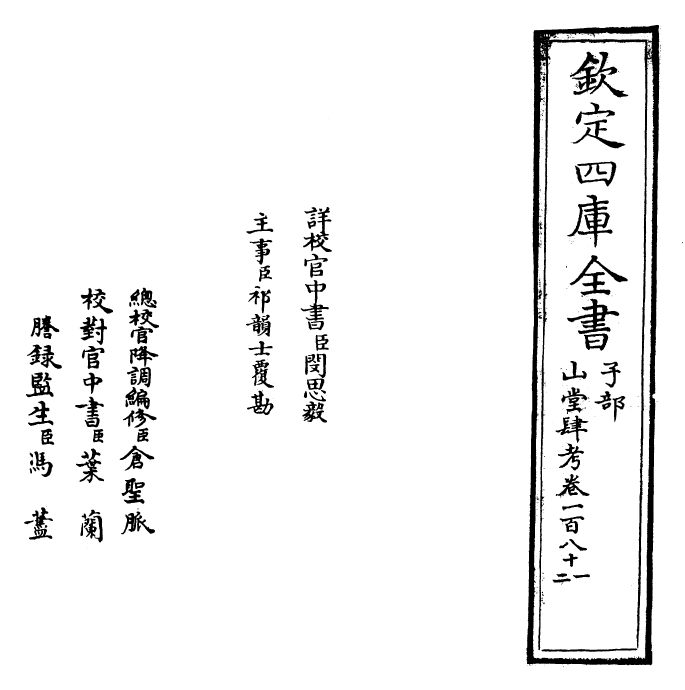 欽定四庫全書
子部
山堂肆考卷一百八十一
二
詳校官中書臣閔思毅
主事臣祁韻士覆勘
總校官降調編修臣倉聖脈
校對官中書臣葉蘭
謄録監生臣馮藎